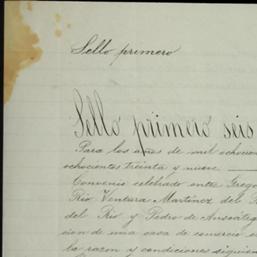 Sello primero
Sello primero seis
Para los años de mil ochocien
ochocientos treinta y nueve
Convenio celebrado entre Grego
Rio Ventura Martinez del
del Rio y Pedro de Ansoateg
cion de una casa de comercio
la razon y condiciones siguien